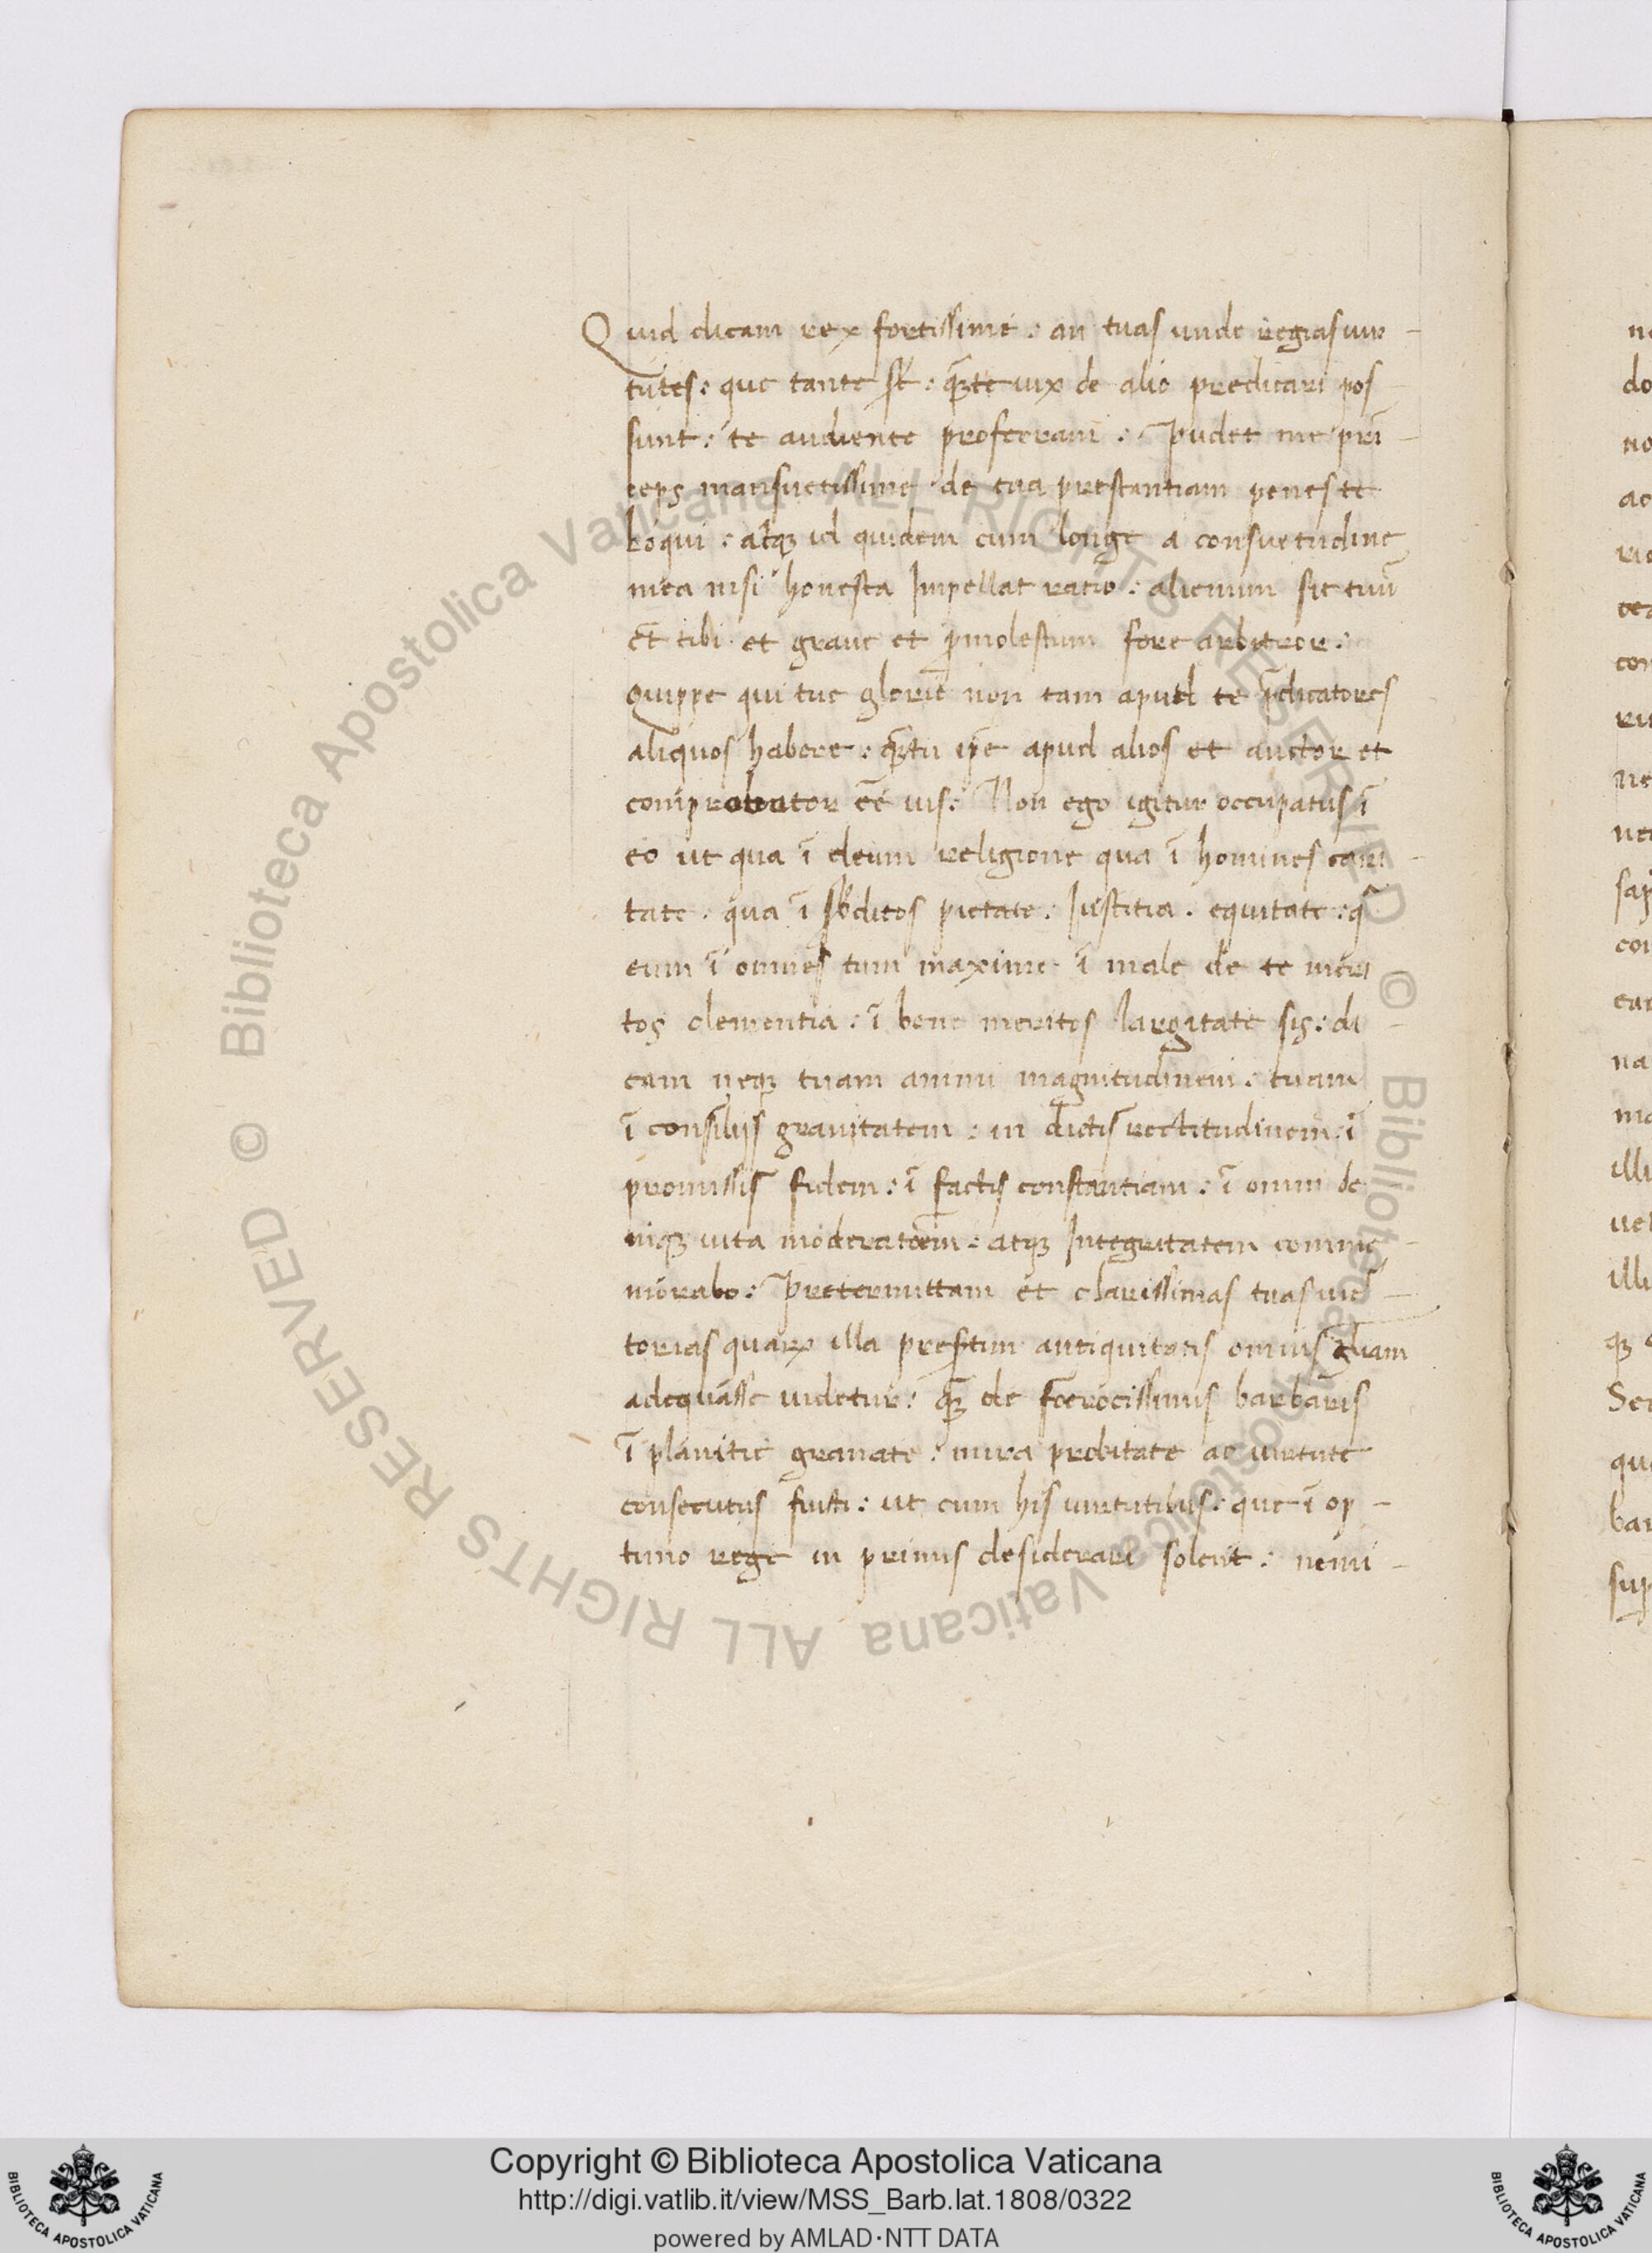 Quid dicam rex fortissime : an tuas unde regias uir-
tutes : que tante st̄ : q̄ꝫ te uix de alio predicari pos-
sunt : te audiente proferam : Pudet me prī-
ceps mansuetissime de tua prestantiam penes te
loqui : atqꝫ id quidem cum longe a consuetudine
mea nisi honesta Impellat ratio : alienum sit tūū
et̄ tibi et graue et ꝑmolestum fore arbitror :
Quippe qui tue glorie non tam apud te p̄dicatores
aliquos habere : q̄ꝫ tu ip̄e apud alios et auctor et
comprobator eē̄ uis : Non ego igitur occupatus ī
eo ut qua ī deum religione qua ī homines cari-
tate . qua ī sb̄ditos pietate : Iustitia . equitate : q̄
cum ī omnes tum maxime ī male de te meri
tos clementia : ī bene meritos largitate sis : di-
cam neqꝫ tuam animi magnitudinem : tuam
ī consilijs grauitatem : in dictis rectitudinem : ī
promissis fidem : ī factis constantiam : ī omni de
niqꝫ uita moderatōem̄ : atqꝫ Integritatem comme-
morabo : Pretermittam et clarissimas tuas uic-
torias quaꝝ illa presertim antiquitatis omnis gl̄iam
adequasse uidetur : q̄ꝫ de foerocissimis barbaris
ī planitie granate : mira probitate ac uirtute
consecutus fuisti : ut cum his uirtutibus : que ī op-
timo rege in primis desiderari solent : nemi-
Copyright © Biblioteca Apostolica Vaticana
http://digi.vatlib.it/view/MSS_Barb.lat.1808/0322
powered by AMLAD·NTT DATA